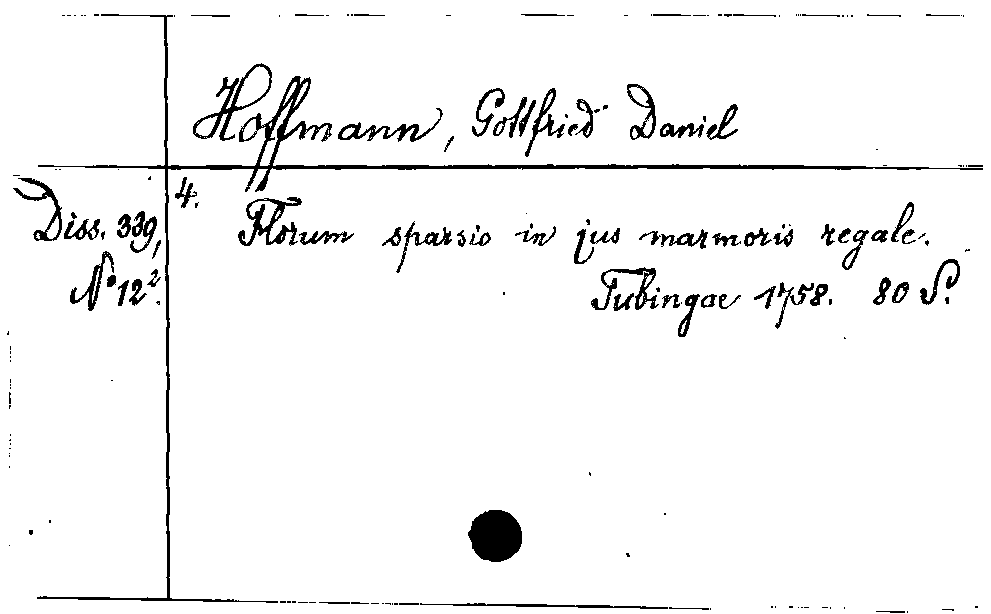 Hoffmann, Gottfried Daniel
4.
Diss. 339,
N° 12².
Florum sparsio in jus marmoris regale.
Tubingae 1758. 80 S.